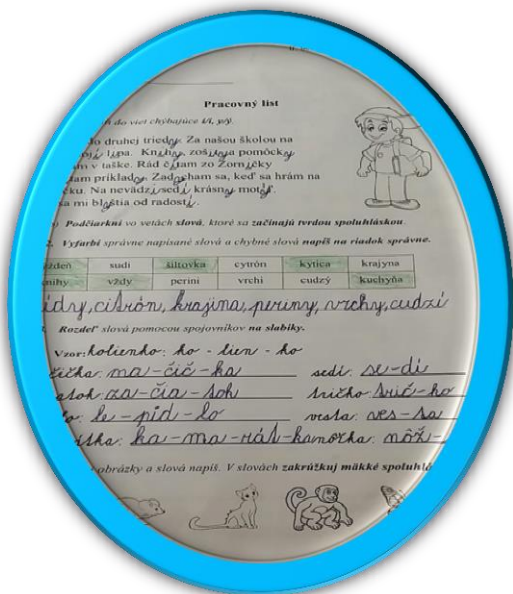 Pracovný list
do viet chýbajúce i/í, y/ý.
do druhej triedy. Za našou školou na
lipa. Knihy, zošity a pomôcky
v taške. Rád čítam zo Zorničky
príklady. Zadýcham sa, keď sa hrám na
Na nevädzi sedí krásny motýľ.
sa mi blyštia od radosti.
Podčiarkni vo vetách slová, ktoré sa začínajú tvrdou spoluhláskou.
2. Vyfarbi správne napísané slová a chybné slová napíš na riadok správne.
sudi šiltovka cytrón kytica krajyna
vždy perini vrchi cudzý kuchyňa
citrón, krajina, periny, vrchy, cudzí
Rozdeľ slová pomocou spojovníkov na slabiky.
Vzor: kolienko: ko - lien - ko
ma-čič-ka sedí: se-dí
za-čia-tok tričko: trič-ko
le-pid-lo vesta: ves-ta
ka-ma-rát-ka nôžka: nôž-
obrázky a slová napíš. V slovách zakrúžkuj mäkké